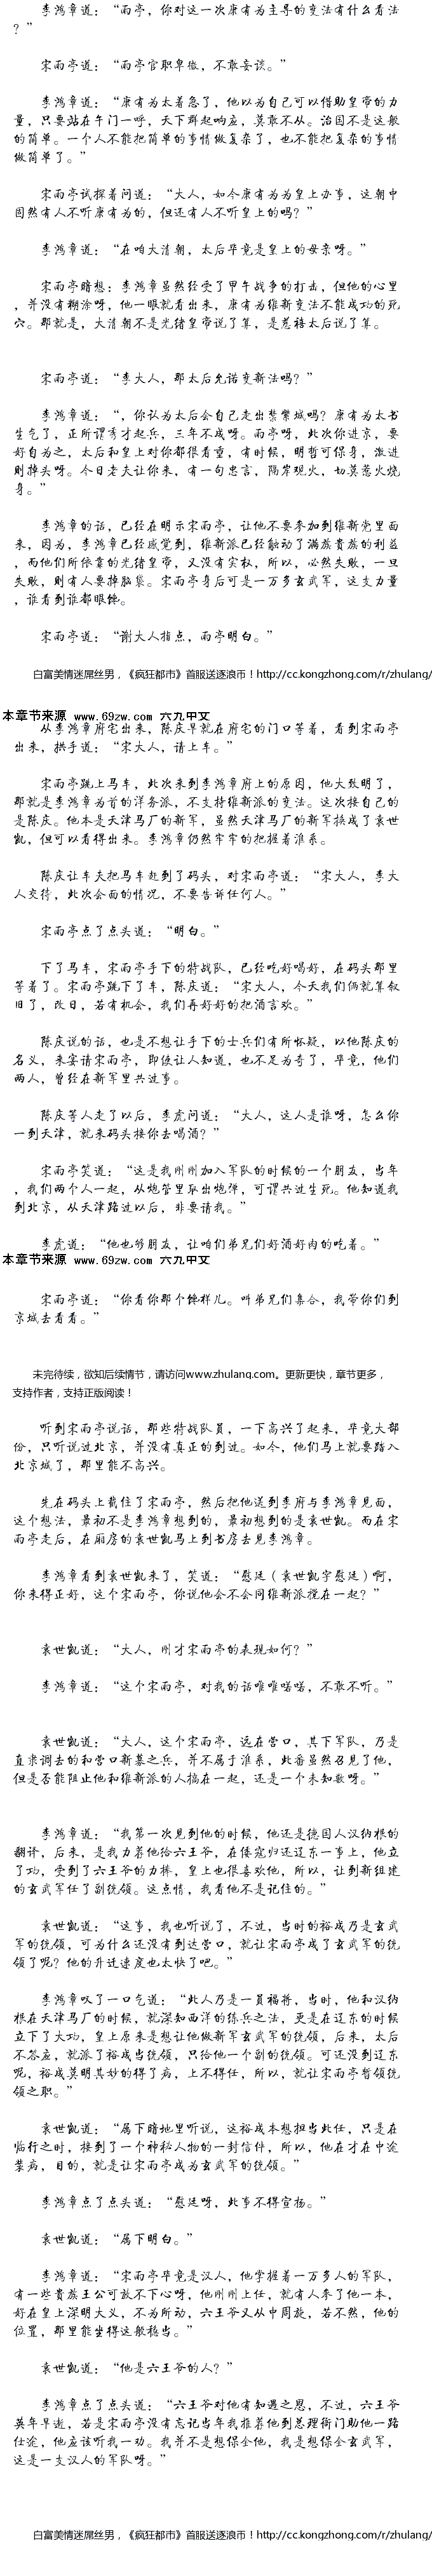 李鸿章道：“雨亭，你对这一次康有为主导的变法有什么看法
？”
宋雨亭道：“雨亭官职卑微，不敢妄谈。”
李鸿章道：“康有为太着急了，他以为自己可以借助皇帝的力
量，只要站在午门一呼，天下群起响应，莫敢不从。治国不是这般
的简单。一个人不能把简单的事情做复杂了，也不能把复杂的事情
做简单了。”
宋雨亭试探着问道：“大人，如今康有为为皇上办事，这朝中
固然有人不听康有为的，但还有人不听皇上的吗？”
李鸿章道：“在咱大清朝，太后毕竟是皇上的母亲呀。”
宋雨亭暗想：李鸿章虽然经受了甲午战争的打击，但他的心里
，并没有糊涂呀，他一眼就看出来，康有为维新变法不能成功的死
穴。那就是，大清朝不是光绪皇帝说了算，是慈禧太后说了算。
宋雨亭道：“李大人，那太后允诺变新法吗？”
李鸿章道：“，你认为太后会自己走出紫禁城吗？康有为太书
生气了，正所谓秀才起兵，三年不成呀。雨亭呀，此次你进京，要
好自为之，太后和皇上对你都很看重，有时候，明哲可保身，激进
则掉头呀。今日老夫让你来，有一句忠言，隔岸观火，切莫惹火烧
身。”
李鸿章的话，已经在明示宋雨亭，让他不要参加到维新党里面
来，因为，李鸿章已经感觉到，维新派已经触动了满族贵族的利益
，而他们所依靠的光绪皇帝，又没有实权，所以，必然失败，一旦
失败，则有人要掉脑袋。宋雨亭身后可是一万多玄武军，这支力量
，谁看到谁都眼馋。
宋雨亭道：“谢大人指点，雨亭明白。”
白富美情迷屌丝男，《疯狂都市》首服送逐浪币！http://cc.kongzhong.com/r/zhulang/
本章节来源 www.69zw.com 六九中文
从李鸿章府宅出来，陈庆早就在府宅的门口等着，看到宋雨亭
出来，拱手道：“宋大人，请上车。”
宋雨亭跳上马车，此次来到李鸿章府上的原因，他大致明了，
那就是李鸿章为首的洋务派，不支持维新派的变法。这次接自己的
是陈庆。他本是天津马厂的新军，虽然天津马厂的新军换成了袁世
凯，但可以看得出来。李鸿章仍然牢牢的把握着淮系。
陈庆让车夫把马车赶到了码头，对宋雨亭道：“宋大人，李大
人交待，此次会面的情况，不要告诉任何人。”
宋雨亭点了点头道：“明白。”
下了马车，宋雨亭手下的特战队，已经吃好喝好，在码头那里
等着了。宋雨亭跳下了车，陈庆道：“宋大人，今天我们俩就算叙
旧了，改日，若有机会，我们再好好的把酒言欢。”
陈庆说的话，也是不想让手下的士兵们有所怀疑，以他陈庆的
名义，来宴请宋雨亭，即使让人知道，也不足为奇了，毕竟，他们
两人，曾经在新军里共过事。
陈庆等人走了以后，李虎问道：“大人，这人是谁呀，怎么你
一到天津，就来码头接你去喝酒？”
宋雨亭笑道：“这是我刚刚加入军队的时候的一个朋友，当年
，我们两个人一起，从炮管里取出炮弹，可谓共过生死。他知道我
到北京，从天津路过以后，非要请我。”
李虎道：“他也够朋友，让咱们弟兄们好酒好肉的吃着。”
本章节来源 www.69zw.com 六九中文
宋雨亭道：“你看你那个馋样儿。叫弟兄们集合，我带你们到
京城去看看。”
未完待续，欲知后续情节，请访问www.zhulang.com。更新更快，章节更多，
支持作者，支持正版阅读！
听到宋雨亭说话，那些特战队员，一下高兴了起来，毕竟大部
份，只听说过北京，并没有真正的到过。如今，他们马上就要踏入
北京城了，那里能不高兴。
先在码头上截住了宋雨亭，然后把他送到李府与李鸿章见面，
这个想法，最初不是李鸿章想到的，最初想到的是袁世凯。而在宋
雨亭走后，在厢房的袁世凯马上到书房去见李鸿章。
李鸿章看到袁世凯来了，笑道：“慰廷（袁世凯字慰廷）啊，
你来得正好，这个宋雨亭，你说他会不会同维新派搅在一起？”
袁世凯道：“大人，刚才宋雨亭的表现如何？”
李鸿章道：“这个宋雨亭，对我的话唯唯喏喏，不敢不听。”
袁世凯道：“大人，这个宋雨亭，远在营口，其下军队，乃是
直隶调去的和营口新募之兵，并不属于淮系，此番虽然召见了他，
但是否能阻止他和维新派的人搞在一起，还是一个未知歌呀。”
李鸿章道：“我第一次见到他的时候，他还是德国人汉纳根的
翻译，后来，是我力荐他给六王爷，在倭寇归还辽东一事上，他立
了功，受到了六王爷的力捧，皇上也很喜欢他，所以，让到新组建
的玄武军任了副统领。这点情，我看他不是记住的。”
袁世凯道：“这事，我也听说了，不过，当时的裕成乃是玄武
军的统领，可为什么还没有到达营口，就让宋雨亭成了玄武军的统
领了呢？他的升迁速度也太快了吧。”
李鸿章叹了一口气道：“此人乃是一员福将，当时，他和汉纳
根在天津马厂的时候，就深知西洋的练兵之法，更是在辽东的时候
立下了大功，皇上原来是想让他做新军玄武军的统领，后来，太后
不答应，就派了裕成当统领，只给他一个副的统领。可还没到辽东
呢，裕成莫明其妙的得了病，上不得任，所以，就让宋雨亭暂领统
领之职。”
袁世凯道：“属下暗地里听说，这裕成本想担当此任，只是在
临行之时，接到了一个神秘人物的一封信件，所以，他在才在中途
装病，目的，就是让宋雨亭成为玄武军的统领。”
李鸿章点了点头道：“慰廷呀，此事不得宣扬。”
袁世凯道：“属下明白。”
李鸿章道：“宋雨亭毕竟是汉人，他掌握着一万多人的军队，
有一些贵族王公可放不下心呀，他刚刚上任，就有人参了他一本，
好在皇上深明大义，不为所动，六王爷又从中周旋，若不然，他的
位置，那里能坐得这般稳当。”
袁世凯道：“他是六王爷的人？”
李鸿章点了点头道：“六王爷对他有知遇之恩，不过，六王爷
英年早逝，若是宋雨亭没有忘记当年我推荐他到总理衙门助他一路
仕途，他应该听我一劝。我并不是想保全他，我是想保全玄武军，
这是一支汉人的军队呀。”
白富美情迷屌丝男，《疯狂都市》首服送逐浪币！http://cc.kongzhong.com/r/zhulang/